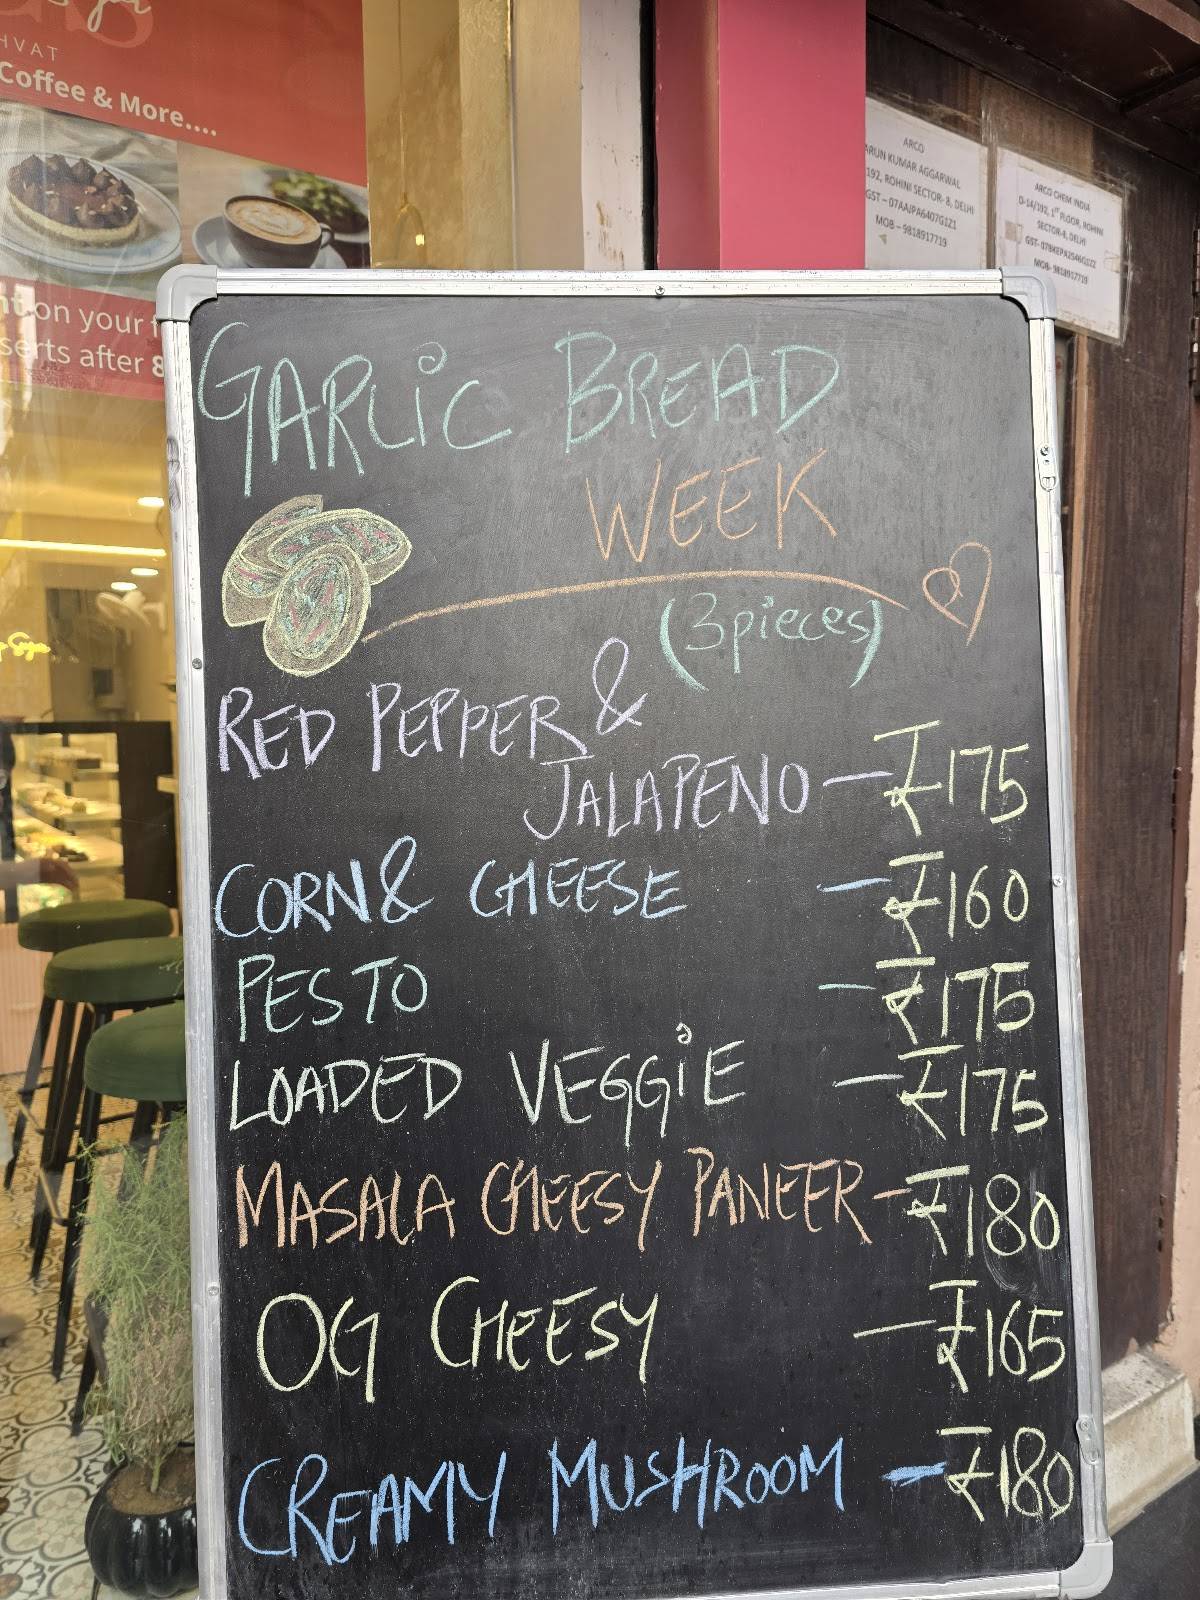 HVAT
Coffee & More....
on your
serts after 8
ARCO
ARUN KUMAR AGGARWAL
192, ROHINI SECTOR- 8, DELHI
GST – 07AA/PA6407G1Z1
MOB – 9818917719
ARCO CHEM INDIA
D-14/192, 1ST FLOOR, ROHINI
SECTOR-8, DELHI
MOB- 9818917719
GARLIC BREAD
WEEK
(3pieces)
RED PEPPER &
JALAPENO — ₹175
CORN & CHEESE — ₹160
PESTO — ₹175
LOADED VEGGIE — ₹175
MASALA CHEESY PANEER - ₹180
OG CHEESY — ₹165
CREAMY MUSHROOM - ₹180